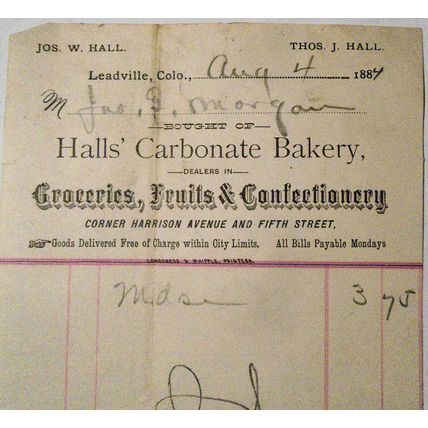 JOS. W. HALL. THOS. J. HALL.
Leadville, Colo., Aug 4 1884
M Jno. J. Morgan
BOUGHT OF
Halls' Carbonate Bakery,
DEALERS IN
Groceries, Fruits & Confectionery
CORNER HARRISON AVENUE AND FIFTH STREET,
Goods Delivered Free of Charge within City Limits. All Bills Payable Mondays
LONGNESS & WHIPPLE, PRINTERS.
Mdse 3 75